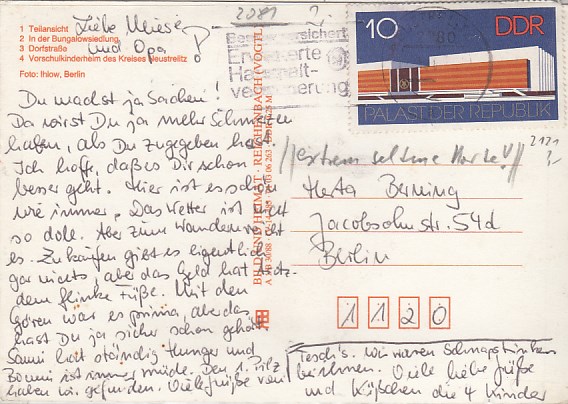 1 Teilansicht
2 In der Bungalowsiedlung
3 Dorfstraße
4 Vorschulkinderheim des Kreises Neustrelitz
Foto: Ihlow, Berlin
Liebe
und Opa!
Du machst ja Sachen!
Da wirst Du ja mehr Schmerzen
haben, als Du zugegeben hast.
Ich hoffe, daß es Dir schon
besser geht. Hier ist es schön
wie immer. Das Wetter ist nicht
so doll. Aber zum Wandern reicht
es. Zu kaufen gibt es eigentlich
gar nichts, aber das Geld hat trotz-
dem flinke Füße. Mit den
Gören war es prima, aber das
hast Du ja sicher schon gehört.
Sami hat ständig Hunger und
ist immer müde. Den 1. Pilz
haben wir gefunden. Viele Grüße von
Tesch's. Wir waren Schnapstrinken
bei ihnen. Viele liebe Grüße
und Küßchen die 4 Kinder
BILD UND HEIMAT · REICHENBACH (VOGTL
2081
Erweiterte
Haushalt-
versicherung
80
10
DDR
PALAST DER REPUBLIK
//extrem seltene Marke!//
2121
Herta Berning
Jacobsohnstr. 54d
Berlin
1120